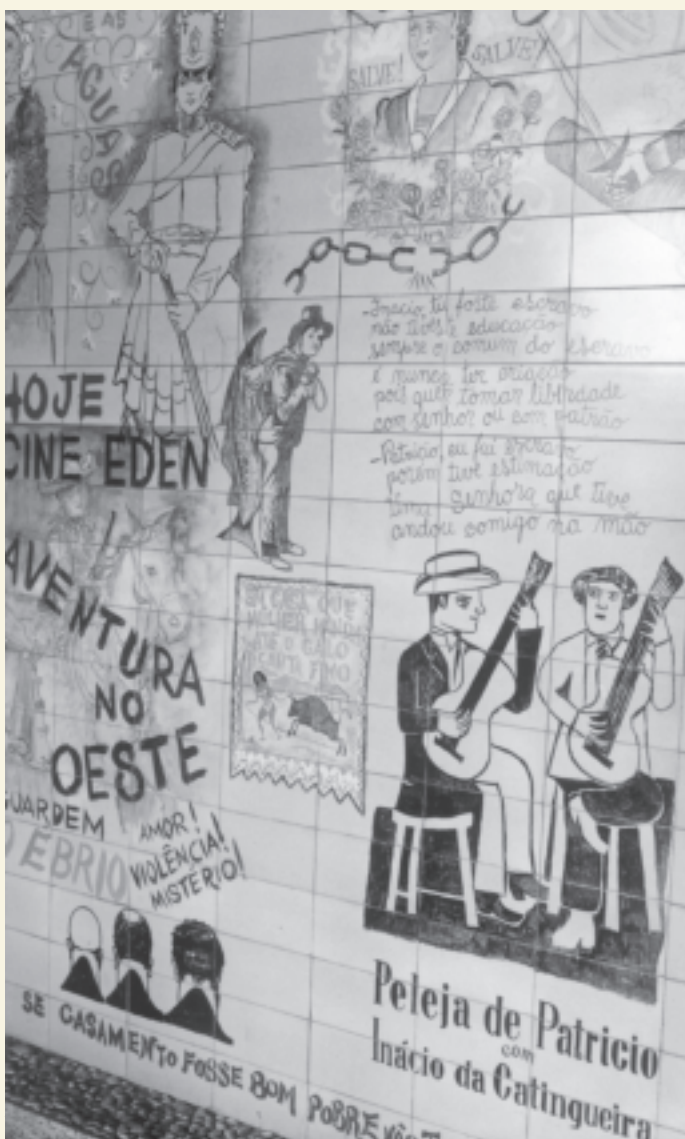 E AS
AGUAS
SALVE! SALVE!
-Inacio, tu foste escravo
não tiveste educação
sempre o comum do escravo
é nunca ter criação
pois quer tomar liberdade
com senhor ou com patrão
-Patricio, eu fui escravo
porém tive estimação
uma senhora que tive
andou comigo na mão
HOJE
CINE EDEN
AVENTURA
NO
OESTE
GUARDEM
O ÉBRIO
AMOR!
VIOLÊNCIA!
MISTÉRIO!
QUE
MULHER MANDA
ATÉ O GALO
CANTA FINO
SE CASAMENTO FOSSE BOM POBRE
Peleja de Patricio
com
Inácio da Catingueira